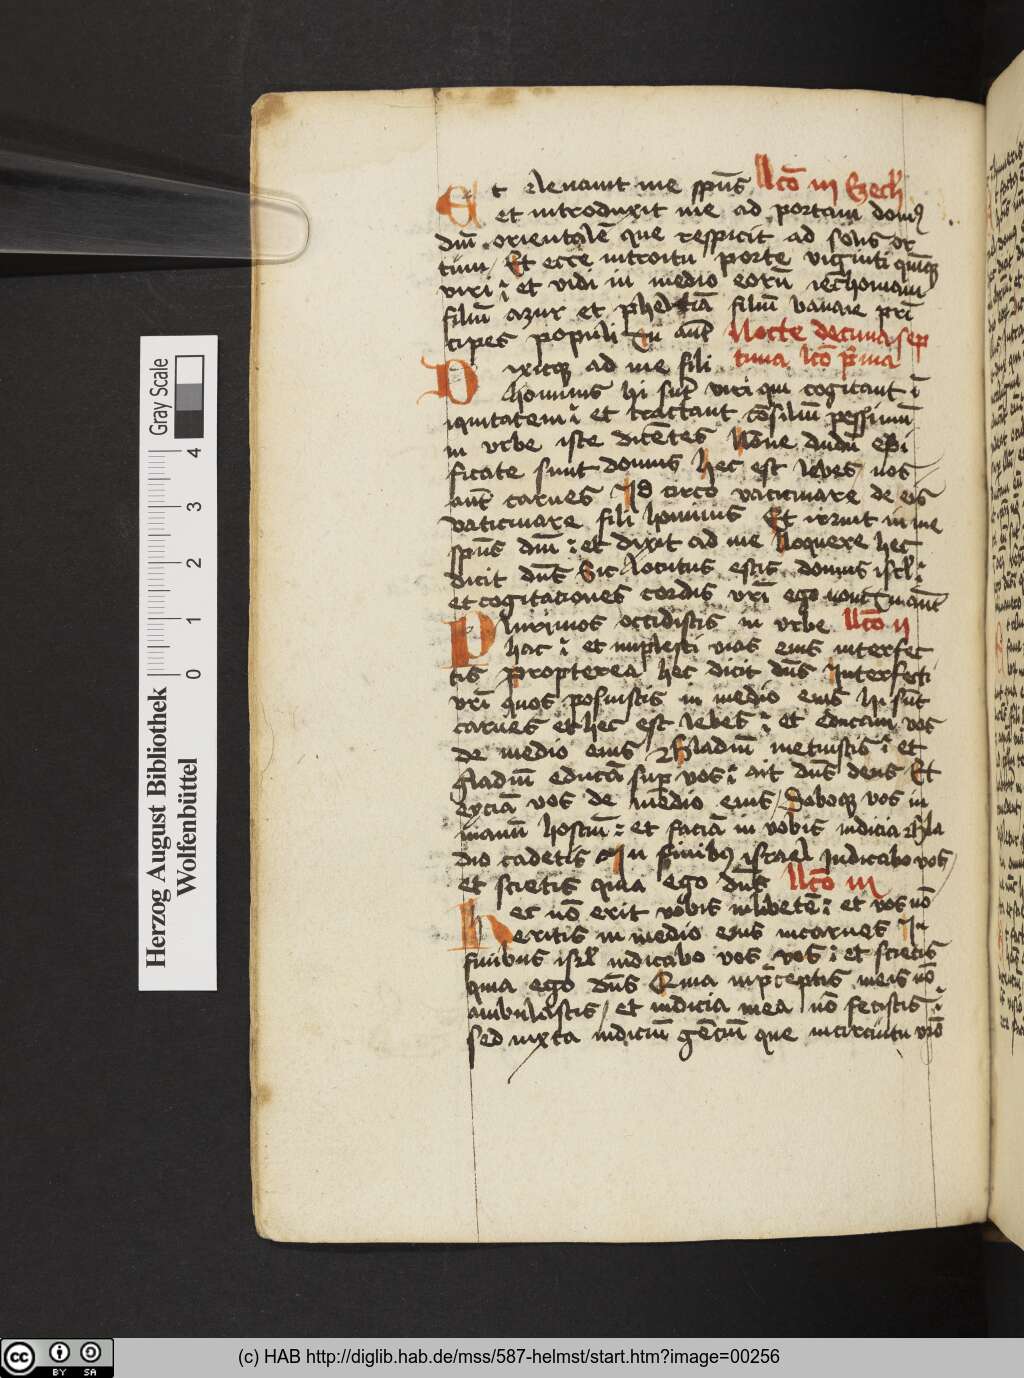 Et eleuauit me spūs lc̄o iij Ezech
et introduxit me ad portam domꝰ
dn̄i orientalē que respicit ad solis or
tum / Et ecce introitu porte viginti qn̄qꝫ
viri et vidi in medio eorū iechoniam
filiū azur et pheltiā filiū banaie prī
cipes populi Tu aūt Nocte decimasep
tima lc̄o p̄ma
Dixitqꝫ ad me fili
hominis hi sūt viri qui cogitant ī
iquitatem et tractant cōsiliū pessimū
in vrbe iste dicētes Nōne dudū edi
ficate sunt domus hec est lebes nos
aūt carnes Id circo vaticinare de eis
vaticinare fili hominis Et irruit in me
spūs dn̄i et dixit ad me Loquere hec
dicit dn̄s Sic locutus estis domus isrl̄
et cogitaciones cordis vr̄i ego noui
Plurimos occidistis in vrbe lc̄o ij
hac et implesti vias eius interfec
tis Propterea hec dicit dn̄s Interfecti
vr̄i quos posuistis in medio eius hi sūt
carnes et hec est lebes et educam vos
de medio eius Gladiū metuistis et
gladiū educā sup vos ait dn̄s deus Et
eyciā vos de medio eius / Daboqꝫ vos in
manū hostiū et faciā in vobis iudicia Gla
dio cadetis In finibꝰ israel Iudicabo vos /
et scietis quia ego dn̄s lc̄o iij
hec nō erit vobis in lebetē et vos nō
eritis in medio eius in carnes In
finibus isrl̄ iudicabo vos vos et scietis
quia ego dn̄s Quia in p̄ceptis meis nō
ambulastis / et iudicia mea nō fecistis
sed iuxta iudiciū gēciū que in circuitu vr̄o
Gray Scale
0 1 2 3 4
Herzog August Bibliothek
Wolfenbüttel
cc BY SA
(c) HAB http://diglib.hab.de/mss/587-helmst/start.htm?image=00256